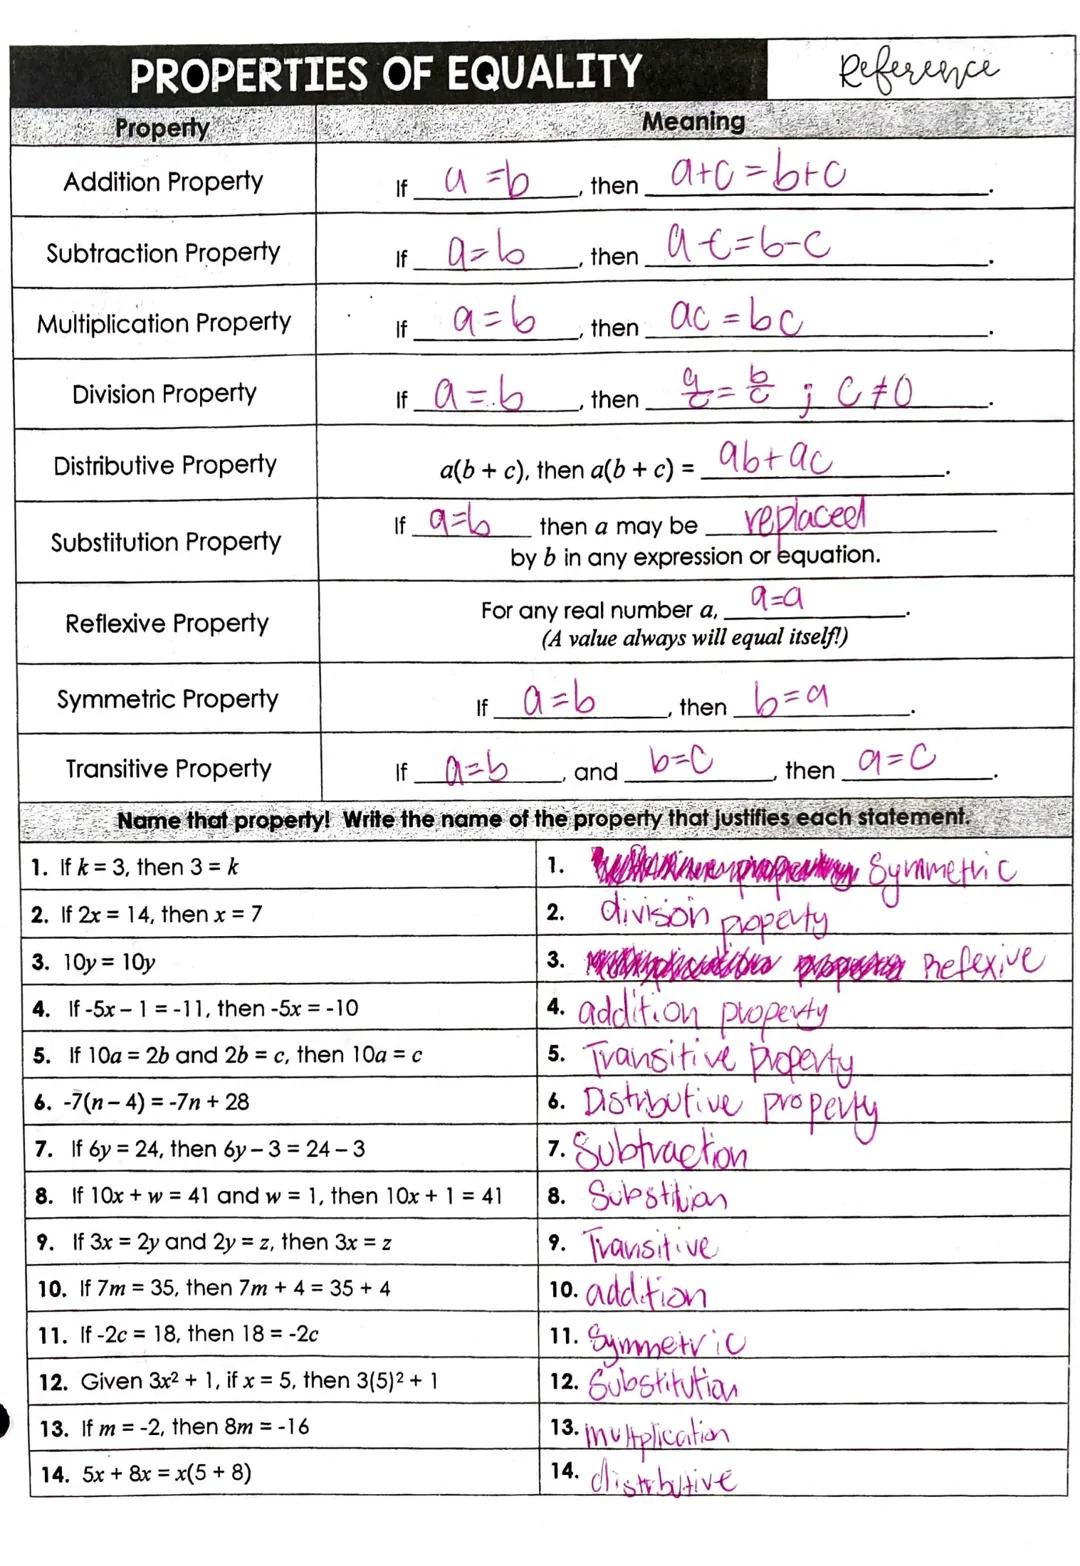 PROPERTIES OF EQUALITY Reference
Property Meaning
Addition Property If a=b, then a+c=b+c.
Subtraction Property If a=b, then a-c=b-c.
Multiplication Property If a=b, then ac=bc.
Division Property If a=b, then a/c=b/c ; c≠0.
Distributive Property a(b + c), then a(b + c) = ab+ac.
Substitution Property If a=b then a may be replaced
by b in any expression or equation.
Reflexive Property For any real number a, a=a.
(A value always will equal itself!)
Symmetric Property If a=b, then b=a.
Transitive Property If a=b, and b=c, then a=c.
Name that property! Write the name of the property that justifies each statement.
1. If k = 3, then 3 = k 1. Symmetric
2. If 2x = 14, then x = 7 2. division property
3. 10y = 10y 3. Refexive
4. If -5x – 1 = -11, then -5x = -10 4. addition property
5. If 10a = 2b and 2b = c, then 10a = c 5. Transitive property
6. -7(n – 4) = -7n + 28 6. Distributive property
7. If 6y = 24, then 6y – 3 = 24 – 3 7. Subtraction
8. If 10x + w = 41 and w = 1, then 10x + 1 = 41 8.
9. If 3x = 2y and 2y = z, then 3x = z 9. Transitive
10. If 7m = 35, then 7m + 4 = 35 + 4 10. addition
11. If -2c = 18, then 18 = -2c 11. Symmetric
12. Given 3x² + 1, if x = 5, then 3(5)² + 1 12. Substitution
13. If m = -2, then 8m = -16 13. multplication
14. 5x + 8x = x(5 + 8) 14. distrbutive